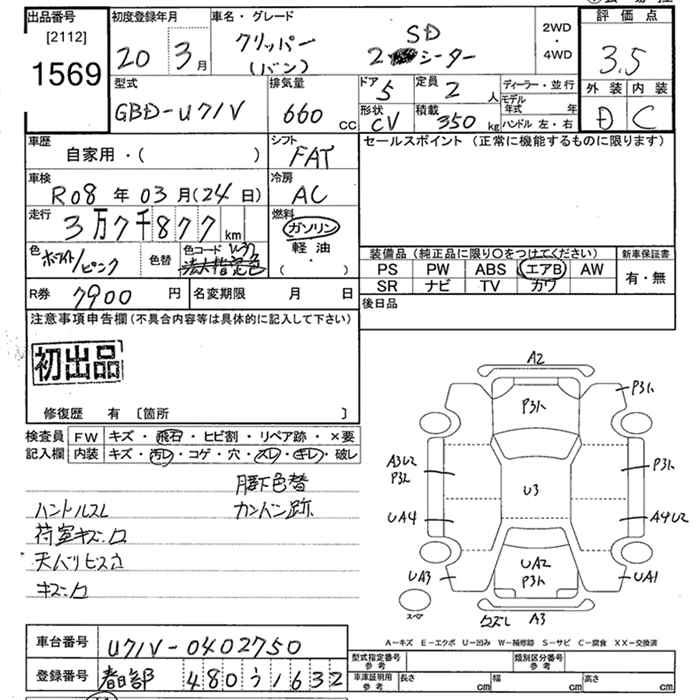 出品番号
[2112]
1569
初度登録年月
20 3月
車名・グレード
クリッパー
(バン)
SD
2 シーター
2WD
・
4WD
評価点
3.5
外装 内装
D C
型式
GBD-U71V
排気量
660 CC
ドア 5
定員 2 人
形状 CV
積載 350 kg
ディーラー・並行
モデル年式 年
ハンドル 左・右
車歴
自家用・( )
シフト
FAT
車検
R08 年 03 月(24 日)
冷房
AC
走行
3万7千877 km
燃料
ガソリン
軽油
・
( )
色 ホワイト/ピンク
色替
色コード
法人指定色
R券 7900 円
名変期限 月 日
セールスポイント (正常に機能するものに限ります)
装備品 (純正品に限り○をつけてください)
新車保証書
PS PW ABS エアB AW
SR ナビ TV カワ
有・無
後日品
注意事項申告欄 (不具合内容等は具体的に記入して下さい)
初出品
修復歴 有 〔箇所 〕
検査員
記入欄
FW キズ・飛石・ヒビ割・リペア跡・×要
内装 キズ・汚レ・コゲ・穴・スレ・キレ・破レ
腰下色替
ハンドルスレ カンバン跡
荷室キズ凹
天バリヒス穴
キズ凹
A2
P3ト
P3ト
A3U2
P3ト
P3ト
U3
UA4
A4U2
UA2
P3ト
UA3
UA1
スペア
A3
A-キズ E-エクボ U-凹み W-補修跡 S-サビ C-腐食 XX-交換済
車台番号 U71V-0402750
登録番号 春日部 480う1632
型式指定番号
参考
類別区分番号
参考
車庫証明用
参考
長さ cm
幅 cm
高さ cm